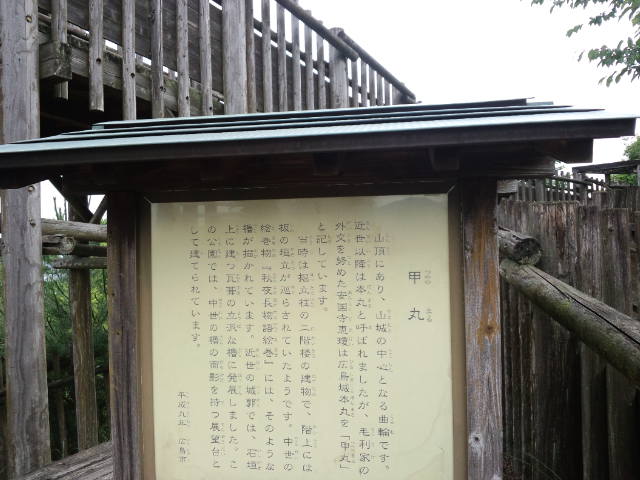 甲丸
つめ まる
山頂にあり、山城の中心となる曲輪です。
近世以降は本丸と呼ばれましたが、毛利家の
外交を努めた安国寺恵瓊は広島城本丸を「甲丸」
と記しています。
当時は掘立柱の二階楼の建物で、階上には
板の垣立が巡らされていたようです。中世の
絵巻物『秋夜長物語絵巻』には、そのような
櫓が描かれています。近世の城郭では、石垣
上に建つ瓦葺の立派な櫓に発展しました。こ
の公園では、中世の櫓の面影を持つ展望台と
して建てられています。
平成九年 広島市